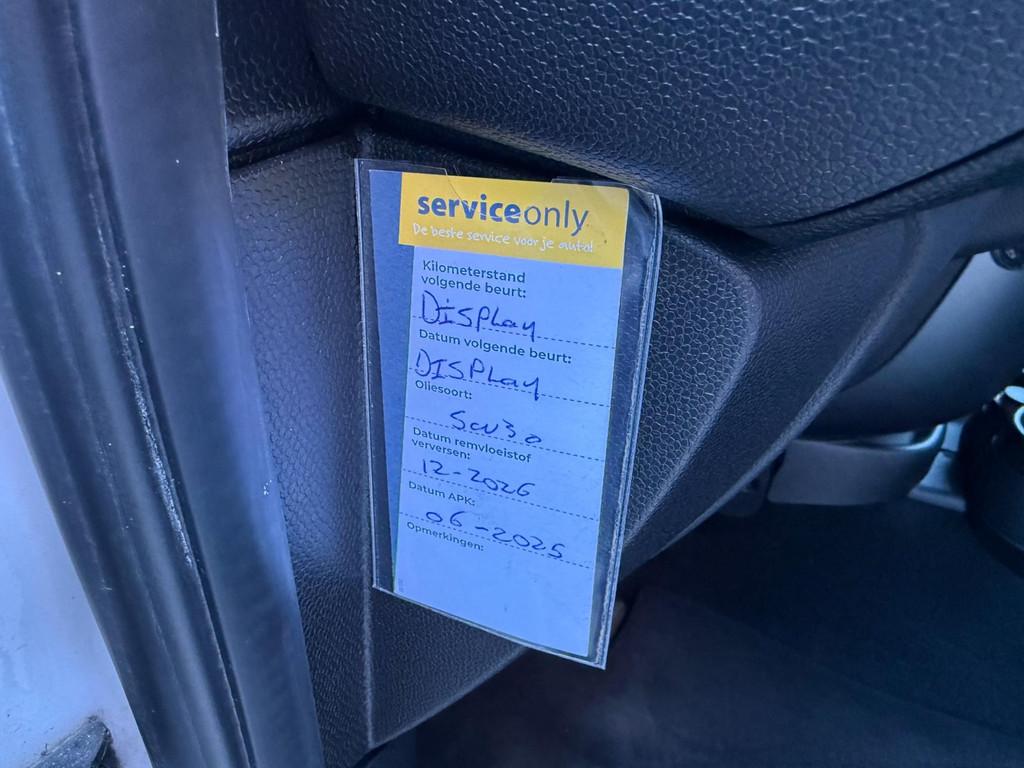 serviceonly
De beste service voor je auto!
Kilometerstand
volgende beurt:
DISPLay
Datum volgende beurt:
DISPLay
Oliesoort:
5W30
Datum remvloeistof
verversen:
12-2026
Datum APK:
06-2025
Opmerkingen: